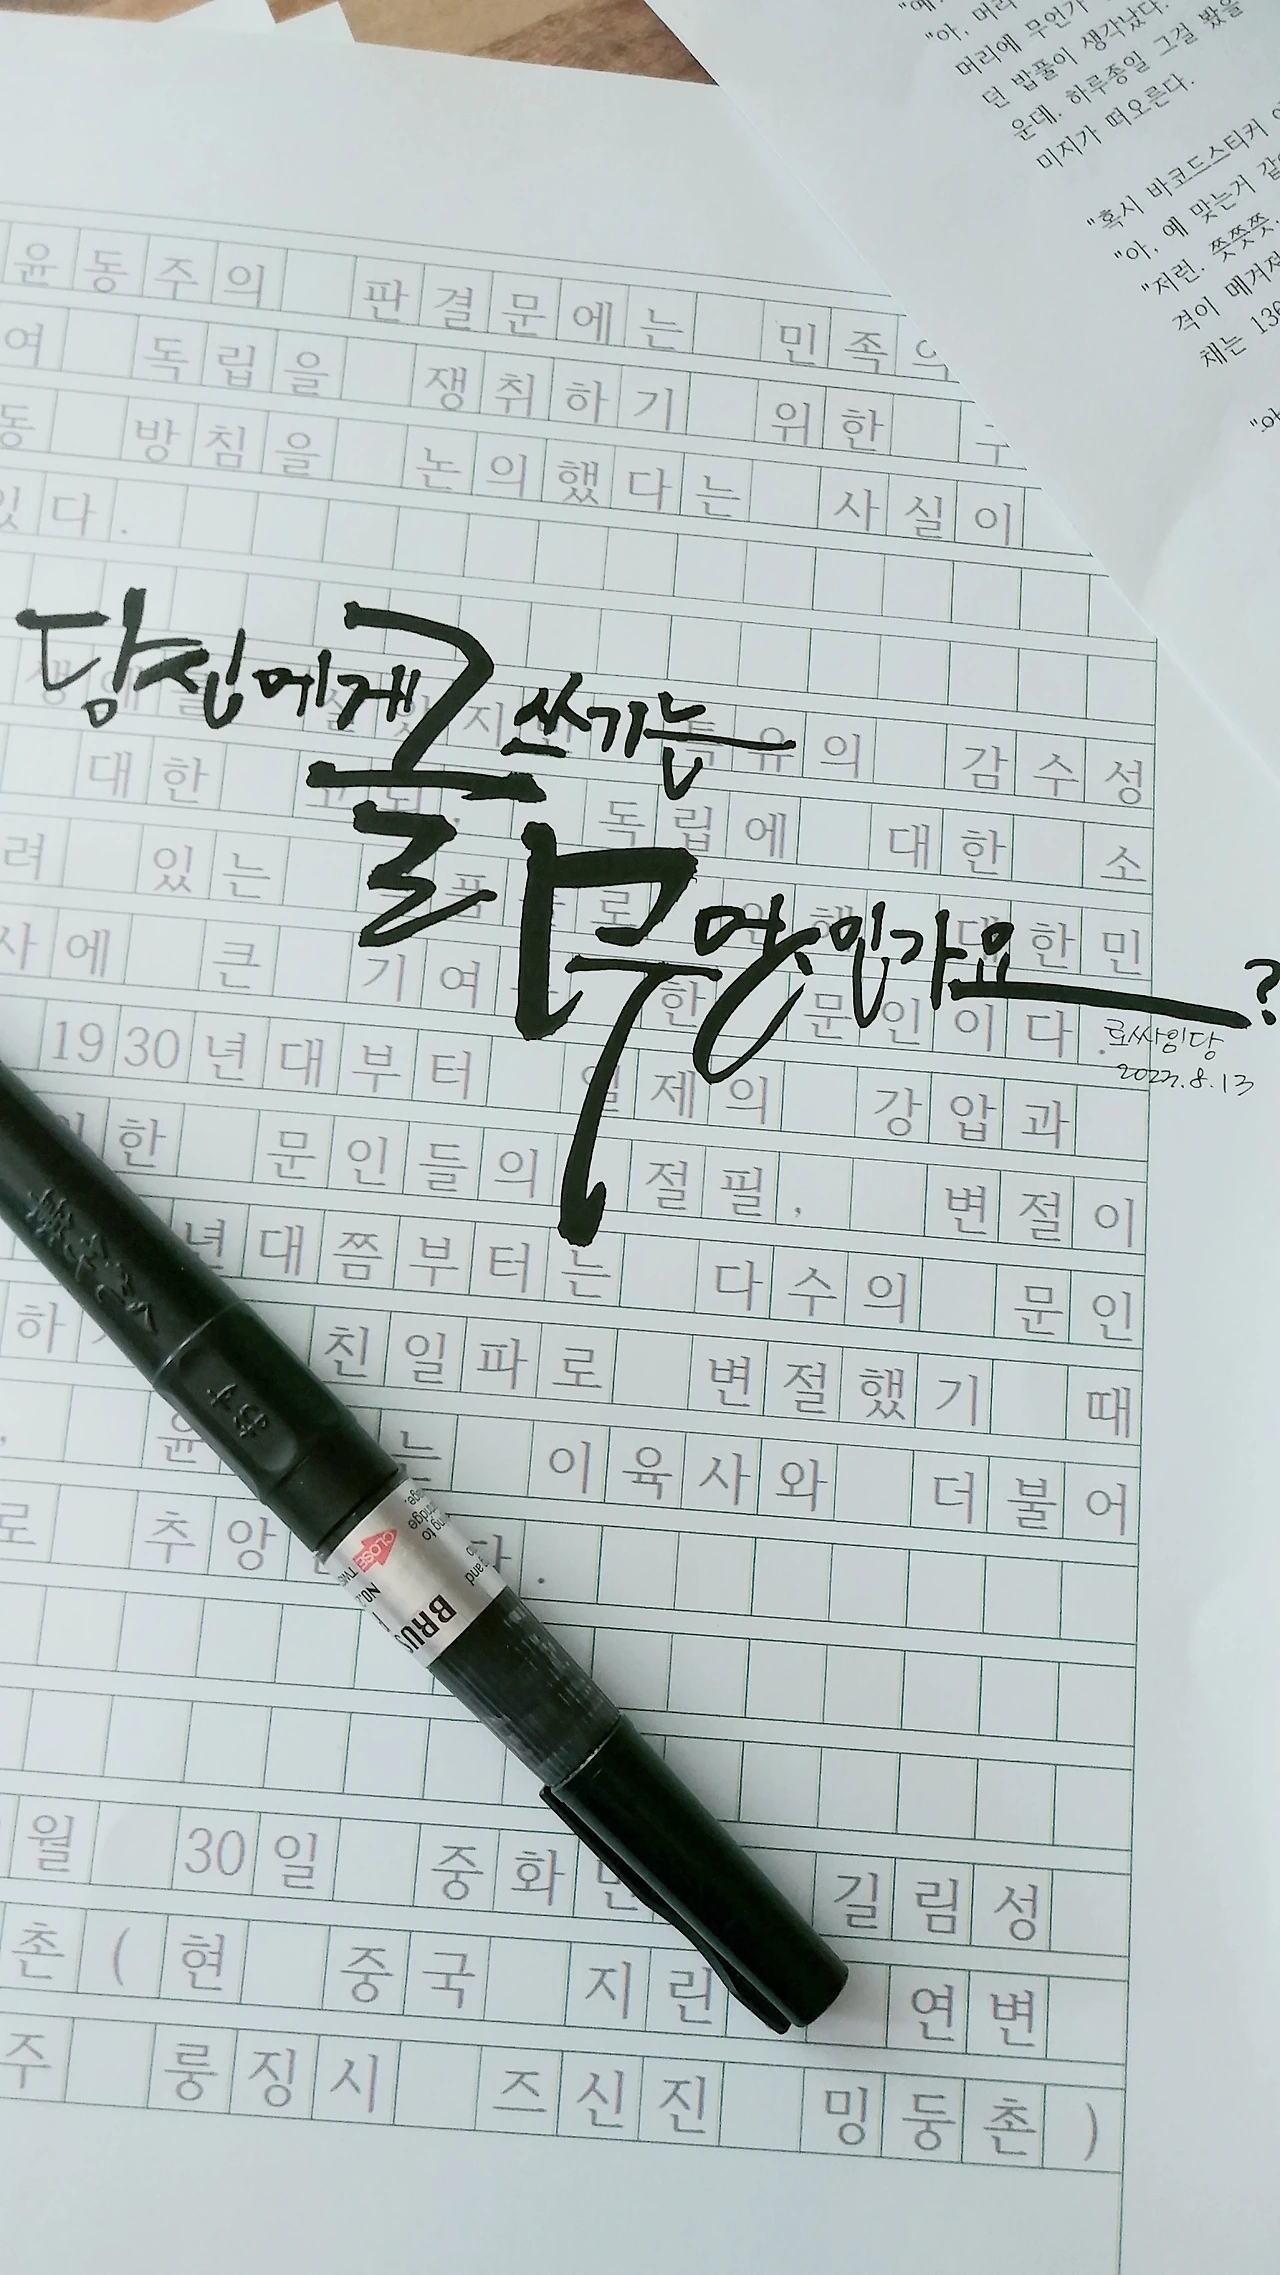 "예.
"아, 머리
머리에 무언가
던 밥풀이 생각났다.
운데. 하루종일 그걸 봤을
미지가 떠오른다.
"혹시 바코드스티커
"아, 예 맞는거
"저런. 쯧쯧쯧.
격이 매겨져
채는 136
"아
윤동주의 판결문에는 민족의
여 독립을 쟁취하기 위한 구
동 방침을 논의했다는 사실이
있다.
당신에게 글쓰기는
무엇인가요?
로싸임당
2023.8.13
특유의 감수성
대한 고뇌, 독립에 대한 소
려 있는 한민
사에 큰 기여 한 문인이다.
1930년대부터 일제의 강압과
한 문인들의 절필, 변절이
년대쯤부터는 다수의 문인
하 친일파로 변절했기 때
, 윤 는 이육사와 더불어
로 추앙 다.
월 30일 중화민 길림성
촌(현 중국 지린 연변
주 룽징시 즈신진 밍둥촌)
CLOSE
BRUS